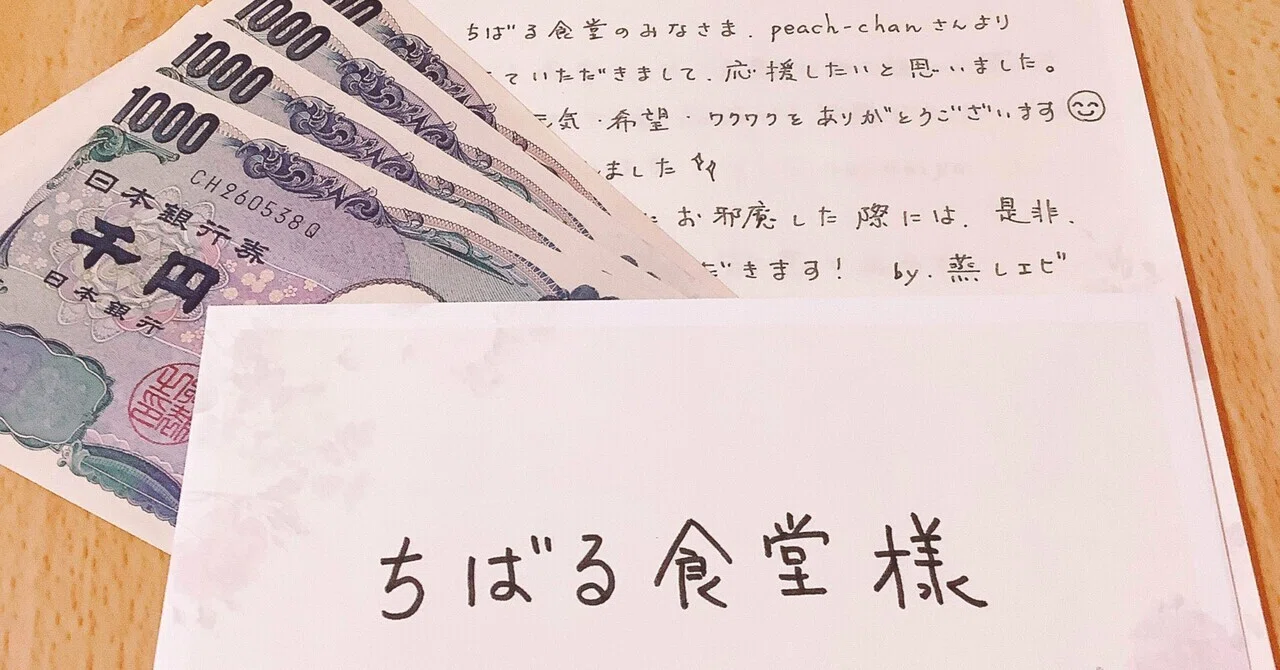 1000
1000
1000
CH260538Q
日本銀行券
千円
日本銀行
ちばる食堂のみなさま、peach-chanさんより
ていただきまして、応援したいと思いました。
元気・希望・ワクワクをありがとうございます
ました
お邪魔した際には、是非、
だきます! by.蒸しエビ
ちばる食堂様